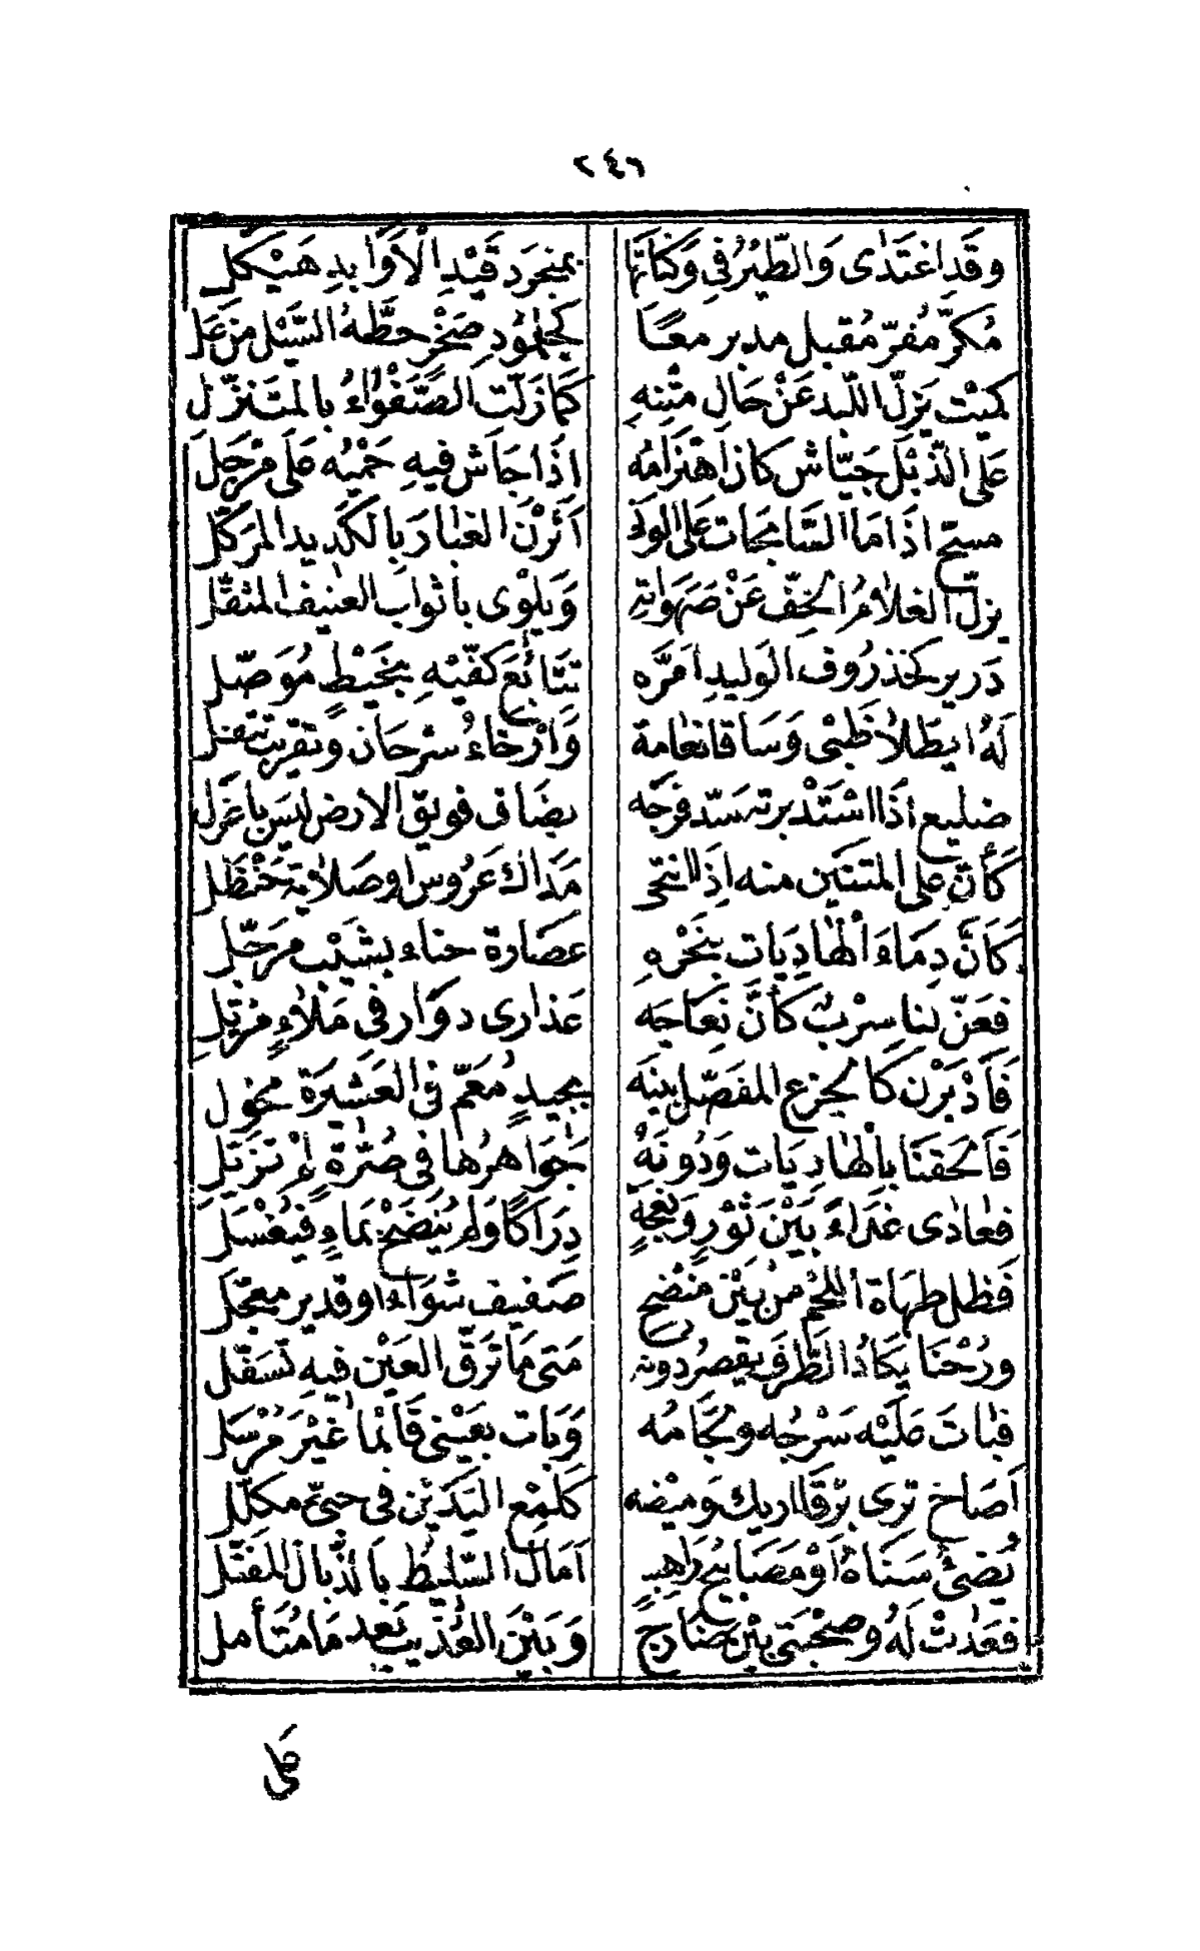 ٢٤٦
وقد اغتدى والطير في وكناتها بمنجرد قيد الاوابد هيكل
مكر مفر مقبل مدبر معا كجلمود صخر حطه السيل من عل
كميت يزل اللبد عن حال متنه كما زلت الصفواء بالمتنزل
على الذبل جياش كان اهتزامه اذا جاش فيه حميه على مرجل
مسح اذا ما السابحات على الونى اثرن الغبار بالكديد المركل
يزل الغلام الخف عن صهواته ويلوى باثواب العنيف المثقل
درير كخذروف الوليد امره تتابع كفيه بخيط موصل
له ايطلا ظبى وساقا نعامة وارخاء سرحان وتقريب تتفل
ضليع اذا استدبرته سد فرجه بضاف فويق الارض ليس باعزل
كأن على المتنين منه اذا انتحى مداك عروس او صلاية حنظل
كأن دماء الهاديات بنحره عصارة حناء بشيب مرجل
فعن لنا سرب كأن نعاجه عذارى دوار في ملاء مذيل
فأدبرن كالجزع المفصل بينه بجيد معم في العشيرة مخول
فألحقنا بالهاديات ودونه جواهرها في صرة لم تزيل
فعادى عداء بين ثور ونعجة دراكا ولم ينضح بماء فيغسل
فظل طهاة اللحم من بين منضج صفيف شواء او قدير معجل
ورحنا يكاد الطرف يقصر دونه متى ما ترق العين فيه تسفل
فبات عليه سرجه ولجامه وبات بعيني قائما غير مرسل
اصاح ترى برقا اريك وميضه كلمع اليدين في حبى مكلل
يضئ سناه او مصابيح راهب امال السليط بالذبال المفتل
فعدت له وصحبتى بين ضارج وبين العذيب بعد ما متأمل
على